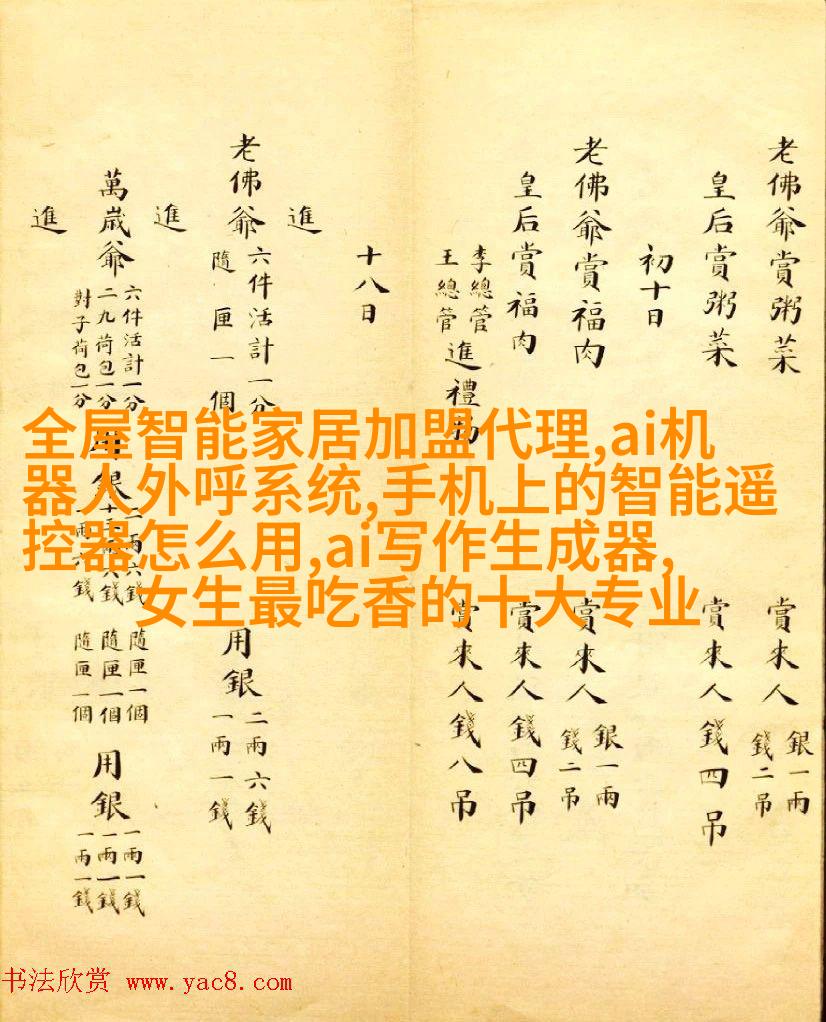 老佛爺賞粥菜
賞來人
銀一兩
錢二吊
皇后賞粥菜
賞來人錢四吊
初十日
老佛爺賞福肉
賞來人
銀一兩
錢二吊
皇后賞福肉
賞來人錢四吊
李總管
王總管
進禮物
賞來人錢八吊
十八日
進
老佛爺
六件活計一分
隨匣一個
用銀
二兩六錢
一兩一錢
進
萬歲爺
六件活計一分
二九荷包一分
對子荷包一分
用銀
隨匣一個
隨匣一個
隨匣一個
用銀
一兩一錢
一兩一錢
一兩一錢
進
全屋智能家居加盟代理,ai机
器人外呼系统,手机上的智能遥
控器怎么用,ai写作生成器,
女生最吃香的十大专业
书法欣赏 www.yac8.com